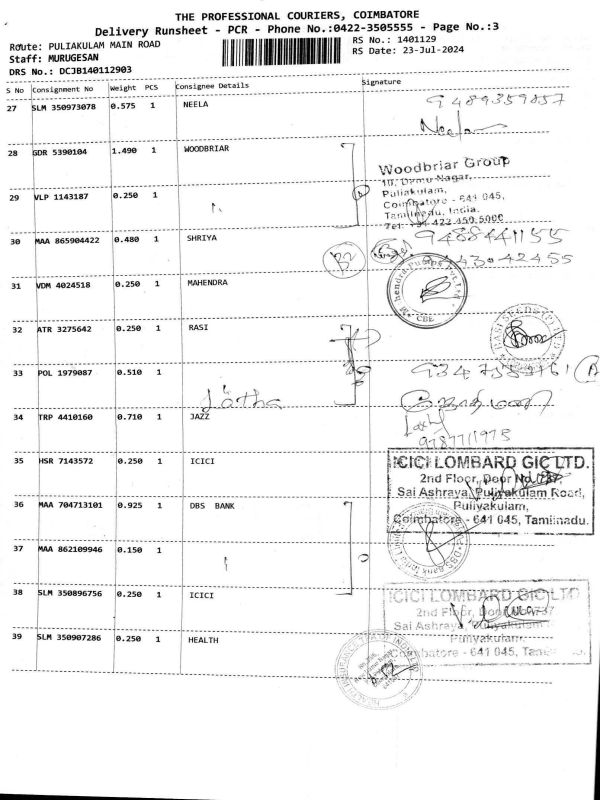 THE PROFESSIONAL COURIERS, COIMBATORE
Delivery Runsheet - PCR - Phone No.:0422-3505555 - Page No.:3
Route: PULIAKULAM MAIN ROAD
RS No.: 1401129
Staff: MURUGESAN
RS Date: 23-Jul-2024
DRS No.: DCJB140112903
S No Consignment No Weight PCS Consignee Details Signature
27 SLM 350973078 0.575 1 NEELA 9489359857
Neela
28 GDR 5390104 1.490 1 WOODBRIAR
Woodbriar Group
10, Damu Nagar,
Puliakulam,
29 VLP 1143187 0.250 1
Coimbatore - 641 045,
Tamilnadu, India.
Tel: +91 422 450 5000
30 MAA 865904422 0.480 1 SHRIYA 9488441155
31 VDM 4024518 0.250 1 MAHENDRA
CBE
32 ATR 3275642 0.250 1 RASI
RASI SEEDS (P) LTD
33 POL 1979087 0.510 1
Latha
34 TRP 4410160 0.710 1 JAZZ
35 HSR 7143572 0.250 1 ICICI
ICICI LOMBARD GIC LTD.
2nd Floor, Door No.737,
Sai Ashraya, Puliyakulam Road,
Puliyakulam,
Coimbatore - 641 045, Tamilnadu.
36 MAA 704713101 0.925 1 DBS BANK
37 MAA 862109946 0.150 1
38 SLM 350896756 0.250 1 ICICI
ICICI LOMBARD GIC LTD
2nd Floor, Door No.737
Sai Ashraya, Puliyakulam
Puliyakulam,
Coimbatore - 641 045,
39 SLM 350907286 0.250 1 HEALTH